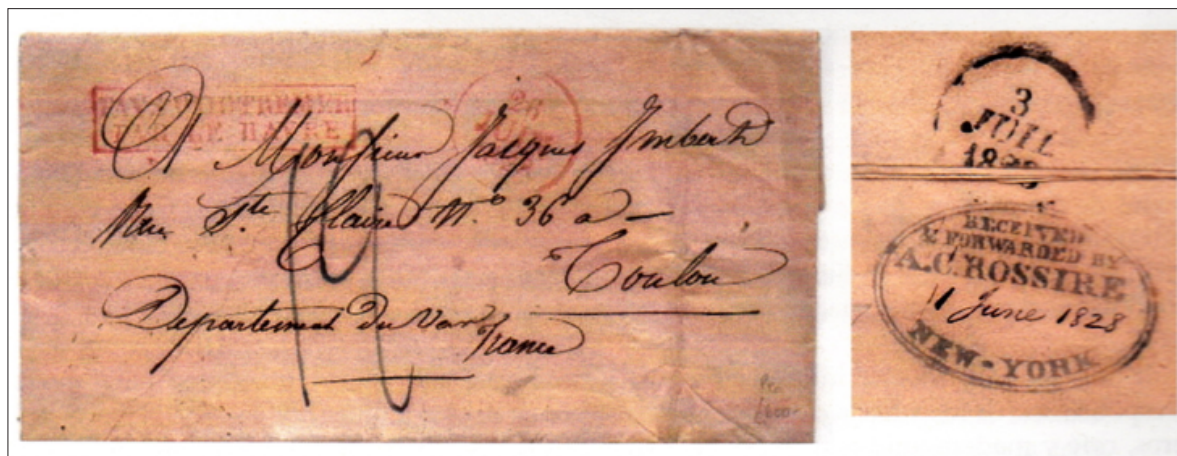 PAYS D'OUTREMER
PAR LE HAVRE
26
JUIL
A Monsieur Jacques Imbert
Rue Ste Claire N.o 36 a —
Toulon
Departement du Var
France
600
3
JUIL
RECEIVED
& FORWARDED BY
A.C. ROSSIRE
11 June 1828
NEW-YORK